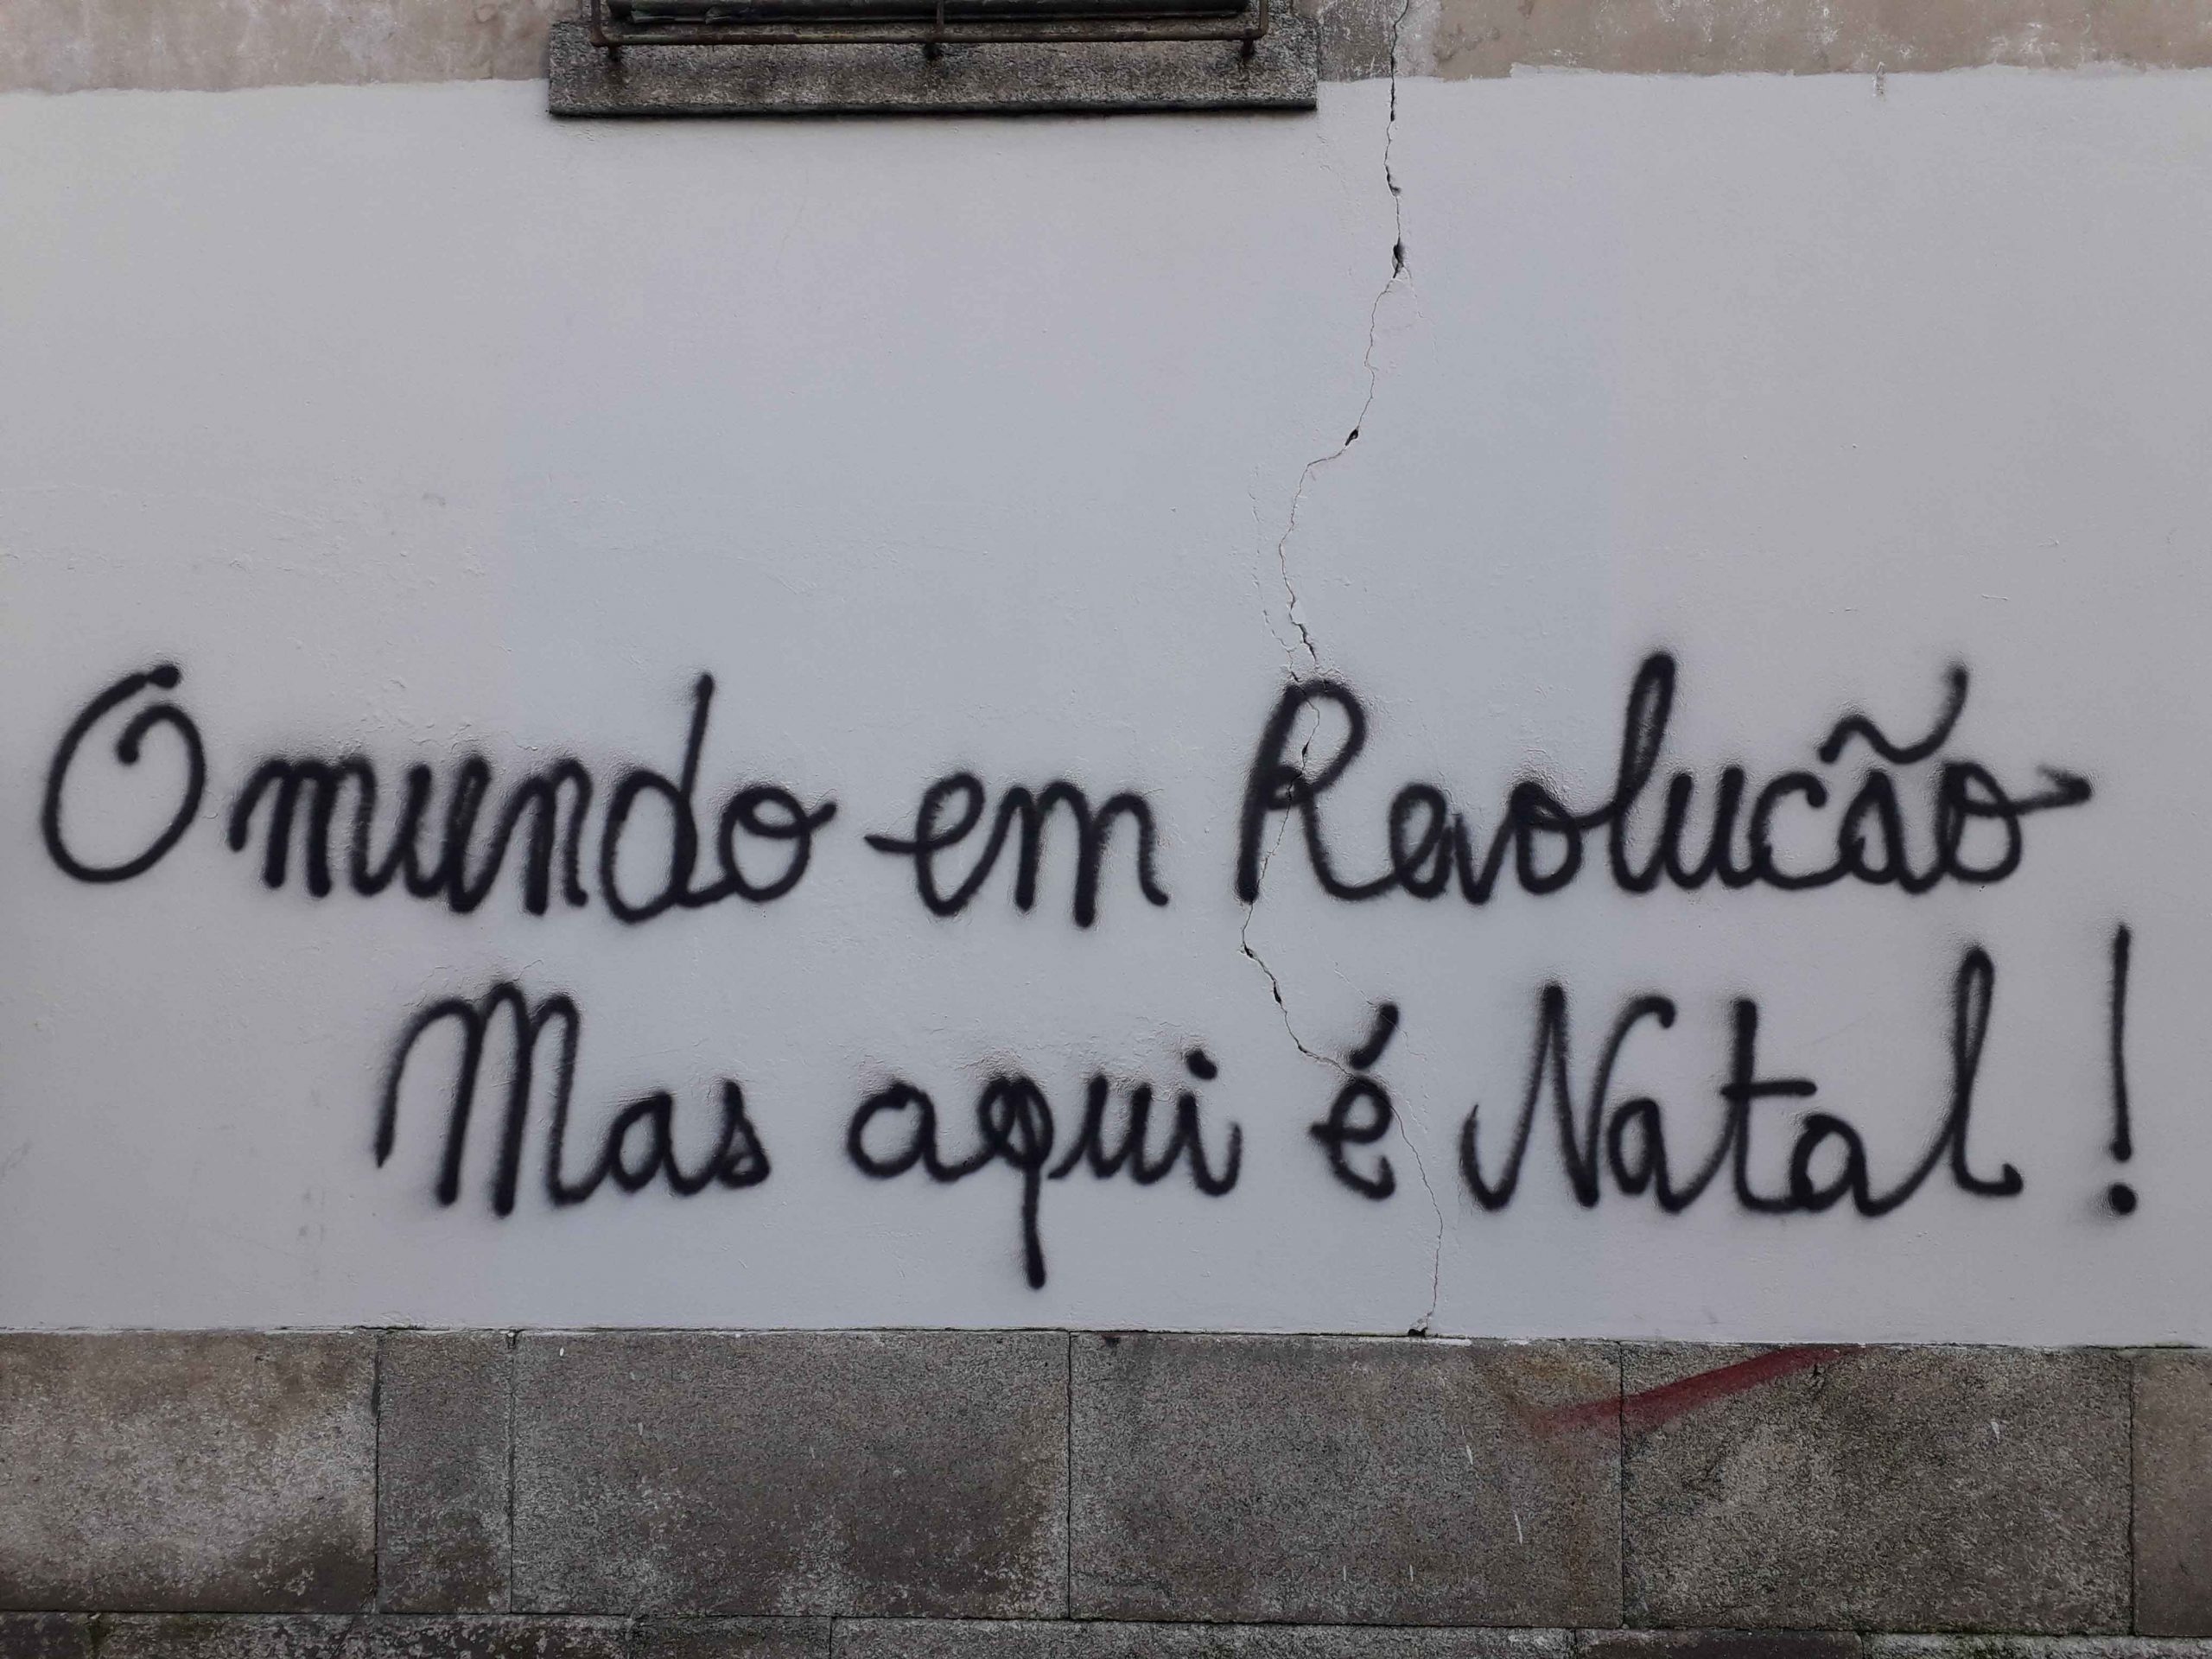 O mundo em Revolucão
Mas aqui é Natal!